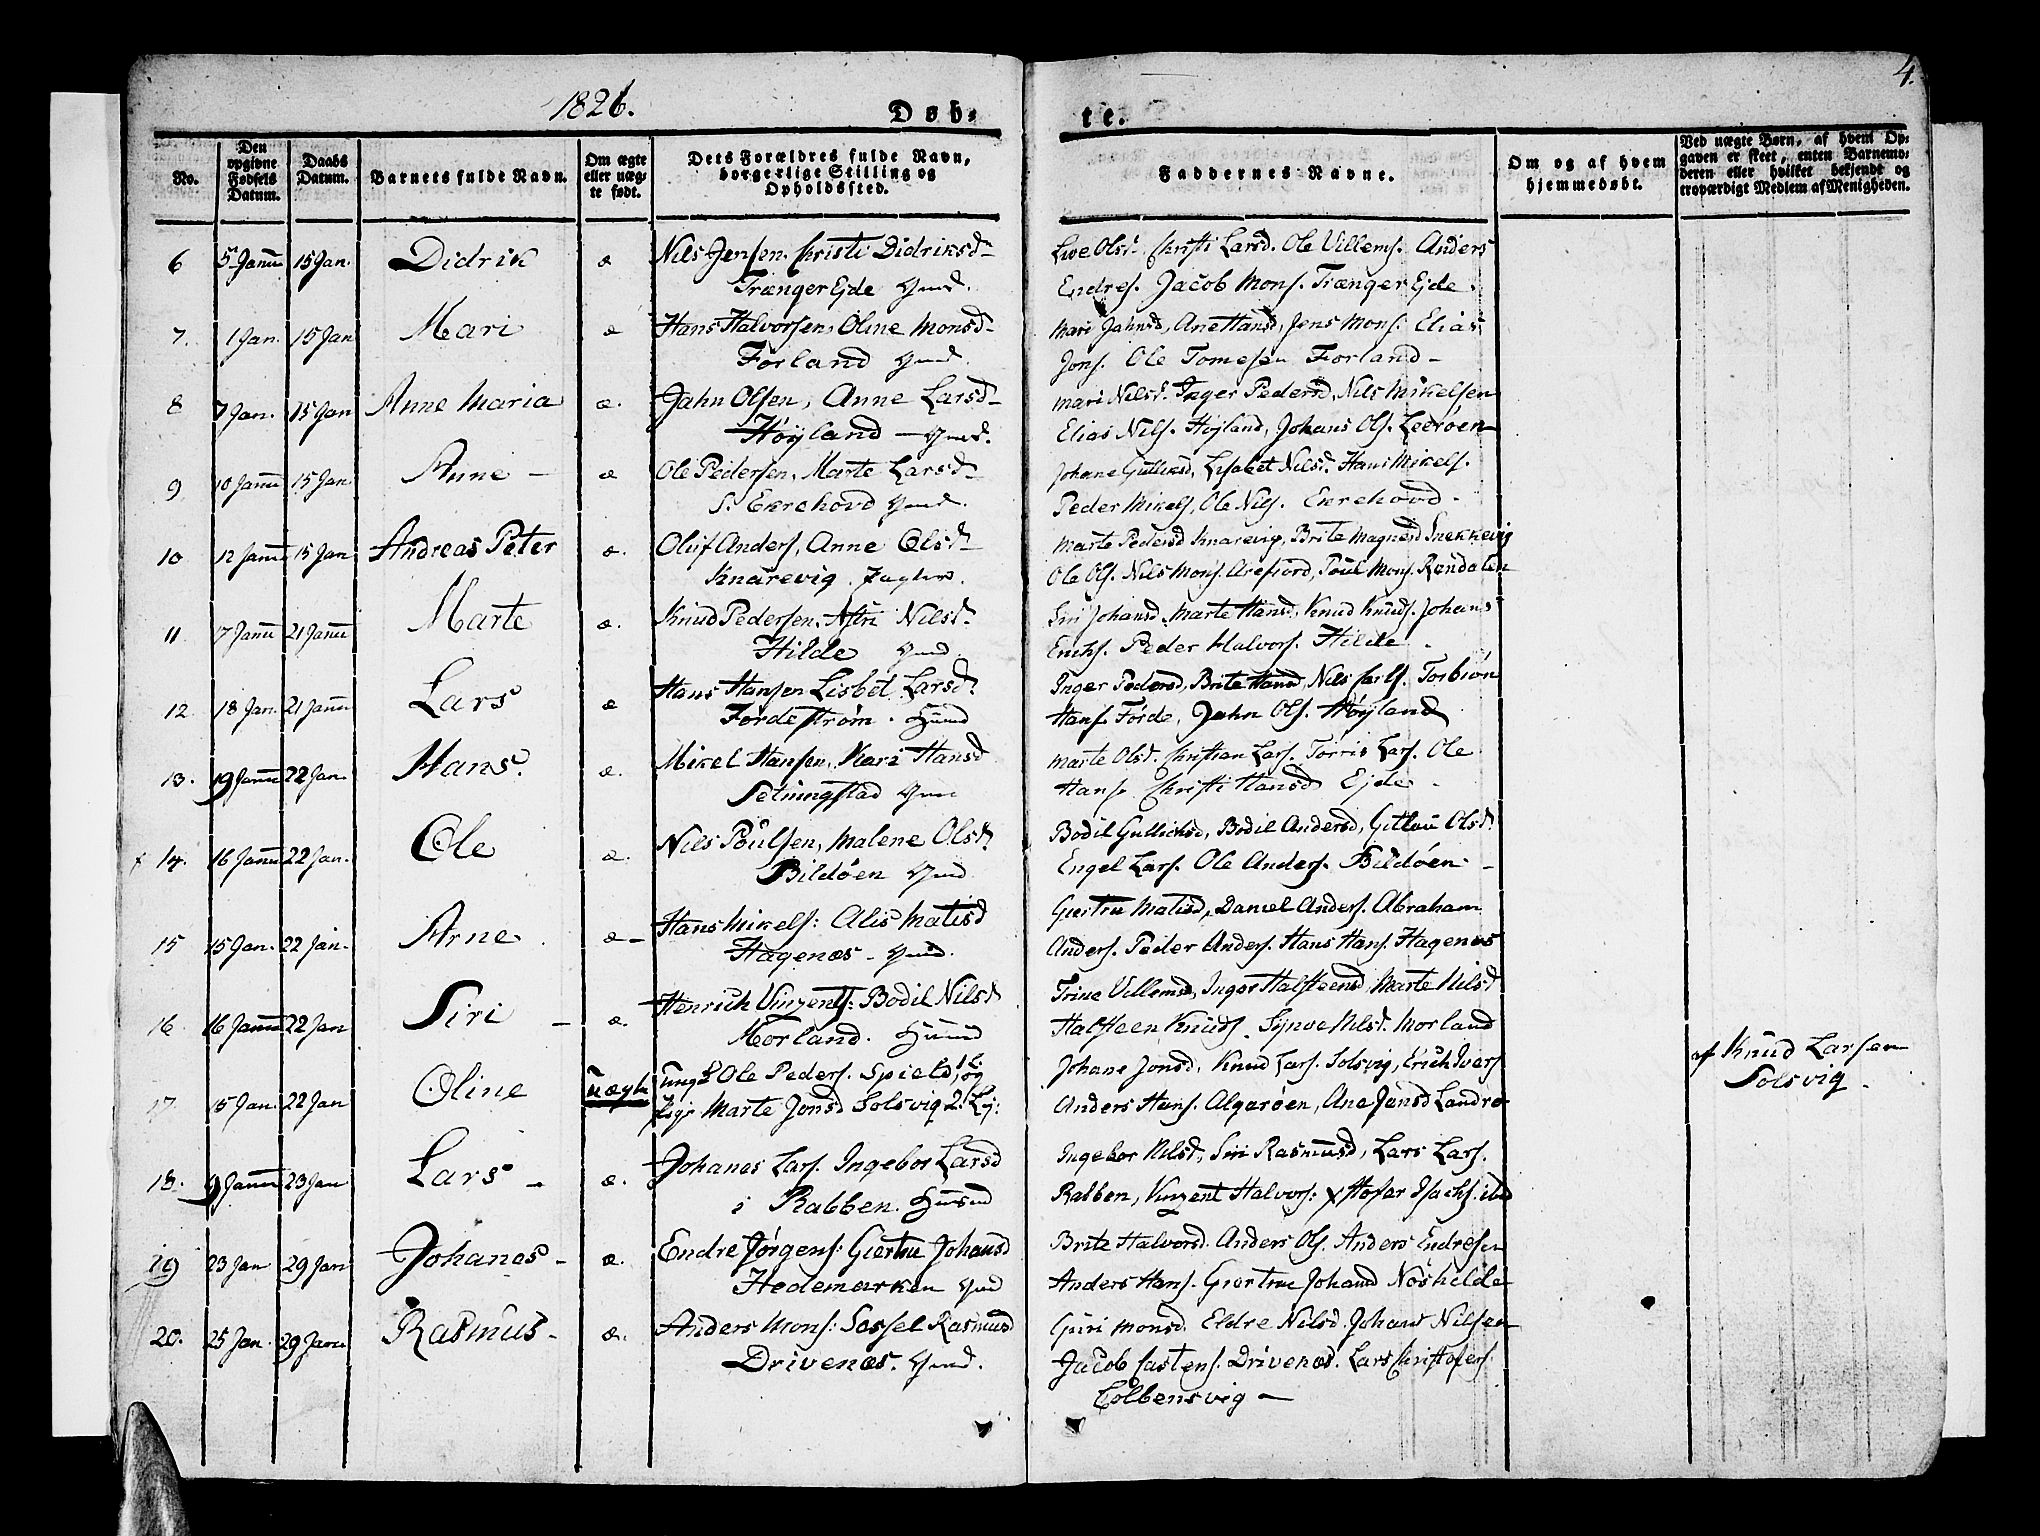 1826. Døb-
te.
4.
No.
Den
opgivne
Fødsels
Datum.
Daabs
Datum.
Barnets fulde Navn.
Om ægte
eller uæg-
te født.
Dets Forældres fulde Navn,
borgerlige Stilling og
Opholdssted.
Faddernes Navne.
Om og af hvem
hjemmedøbt.
Ved uægte Børn, af hvem Op-
gaven er skeet, enten Barnemo-
deren eller hvilket bekjendt og
troværdigt Medlem af Menigheden.
6 5 Janu 15 Jan Didrik æ Nils Jensen. Christi Didriksd-
Trænger Ejde
Olsd. Christi Larsd. Ole Villems. Anders
Endres. Jacob Mons. Trænger Ejde.
7. 1 Jan. 15 Jan Mari æ Hans Halvorsen, Oline Monsd-
Forland
Mari Jahnsd, Ane Hansd, Jens Mons. Elias
Jons. Ole Tomesen Forland-
8 7 Jan. 15 Jan Anne Maria æ. Jahn Olsen, Anne Larsd-
Høyland
Mari Nilsd. Inger Pedersd, Nils Mikelsen
Elias Nils. Højland, Johans Ols. Leerøen
9 10 Janu 15 Jan Anne - æ Ole Pedersen, Marte Larsd-
S. Ekrehovd
Johane Gulliksd, Lisabet Nilsd. Hans Mikels.
Peder Mikels, Ole Nils. Ekrehovd.
10 12 Janu 15 Jan Andreas Peter æ. Oluf Anders, Anne Olsd-
Knarevig.
Marte Pedersd Knarevig, Brite Magnesd Snekkevig
Ole Ols. Nils Mons. Arefiord, Poul Mons. Ramdalen
11. 17 Janu 21 Janu Marte æ. Knud Pedersen. Astri Nilsd.
Hilde
Siri Johansd. Marte Hansd, Knud Knuds. Johans
Erichs. Peder Halvors. Hilde.
12 18 Jan. 21 Janu Lars æ Hans Hansen Lisbet Larsd.
Fordestrøm. Huusmd
Inger Pedersd, Brite Hansd, Nils Carls. Torbiøn
Hans. Førde, Jahn Ols. Høyland
13. 19 Janu 22 Jan. Hans. æ. Mikel Hansen, Kari Hansd
Marte Olsd. Christian Lars. Torris Lars. Ole
Hans. Christi Hansd Ejde.
14. 16 Janu 22 Jan. Ole æ. Nils Poulsen, Malene Olsd
Bildøen
Bodil Gullichsd, Bodil Andersd, Olsd.
Engel Lars. Ole Anders. Bildøen.
15 15 Jan. 22 Jan. Arne æ- Hans Mikels: Alis Matisd
Hagenæs-
Giertru Matisd, Daniel Anders. Abraham
Anders. Peder Anders. Hans Hans. Hagenæs
16. 16 Janu 22 Jan Siri - æ. Henrich Vinzents: Bodil Nilsd
Morland. Huusmd
Trine Villemsd, Inger Halsteensd, Marte Nilsd
Halsteen Knuds. Synve Nilsd. Morland
17. 15 Jan. 22 Jan Oline uægte Ungk. Ole Peders. Spield, og
Pige Marte Jonsd Solsvig
Johane Jonsd, Knud Lars. Solsvig, Erich Ivers
Anders Hans. Algerøen, Ane Jensd Landrø
af Knud Larsen
Solsvig.
18. 9 Janu 23 Jan Lars - æ. Johanes Lars. Ingebor Larsd
i Rabben. Huusmd
Ingebor Nilsd, Siri Rasmusd, Lars Lars.
Rabben, Vinzent Halvors: Xstofer Isachs. ibid
19 23 Jan 29 Jan Johanes - æ. Endre Jørgens: Giertru Johansd
Hedemarken
Brite Halvorsd. Anders Ols. Anders Endresen
Anders Hans. Giertrue Johansd Nøshelde
20. 25 Jan. 29 Janu Rasmus - æ. Anders Mons: Sossel Rasmusd
Drivenæs.
Guri Monsd. Eldre Nilsd. Johans Nilsen
Jacob Castens. Drivenæs. Lars Christofers.
Colbensvig-